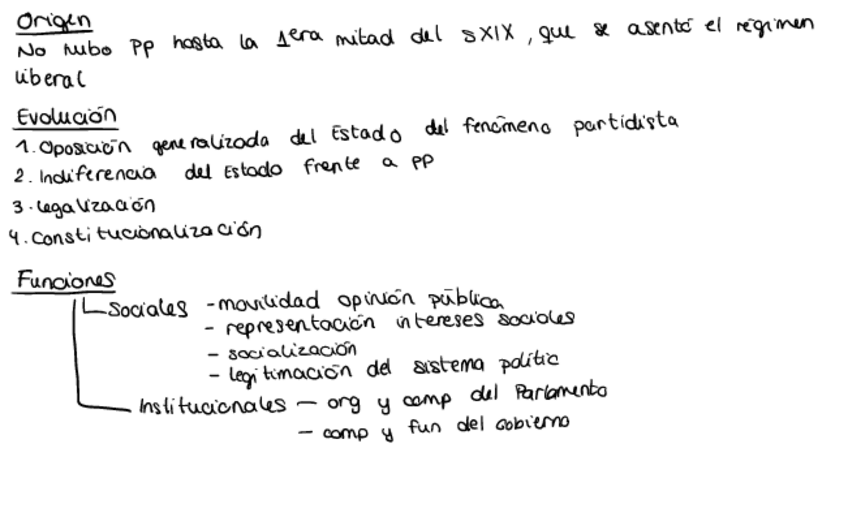 Origen
No hubo PP hasta la 1era mitad del sXIX, que se asentó el régimen
liberal
Evolución
1. Oposición generalizada del Estado del fenómeno partidista
2. Indiferencia del Estado frente a PP
3. legalización
4. constitucionalización
Funciones
Sociales - movilidad opinión pública
- representación intereses sociales
- socialización
- legitimación del sistema polític
Institucionales - org y comp del Parlamento
- comp y fun del Gobierno